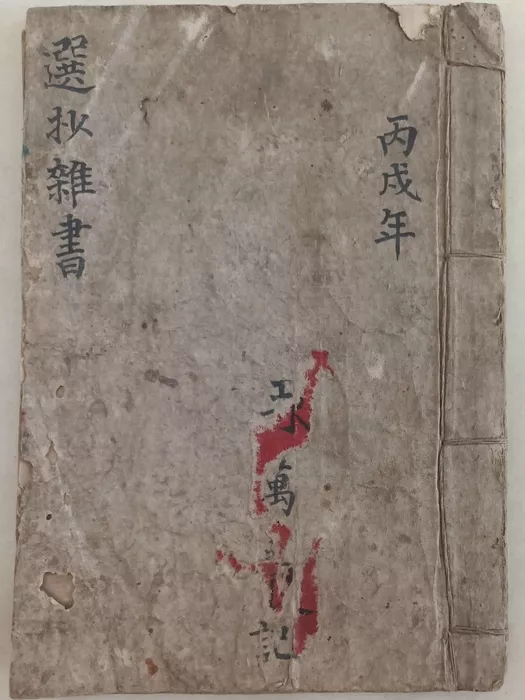 丙戌年
萬 記
選抄雜書